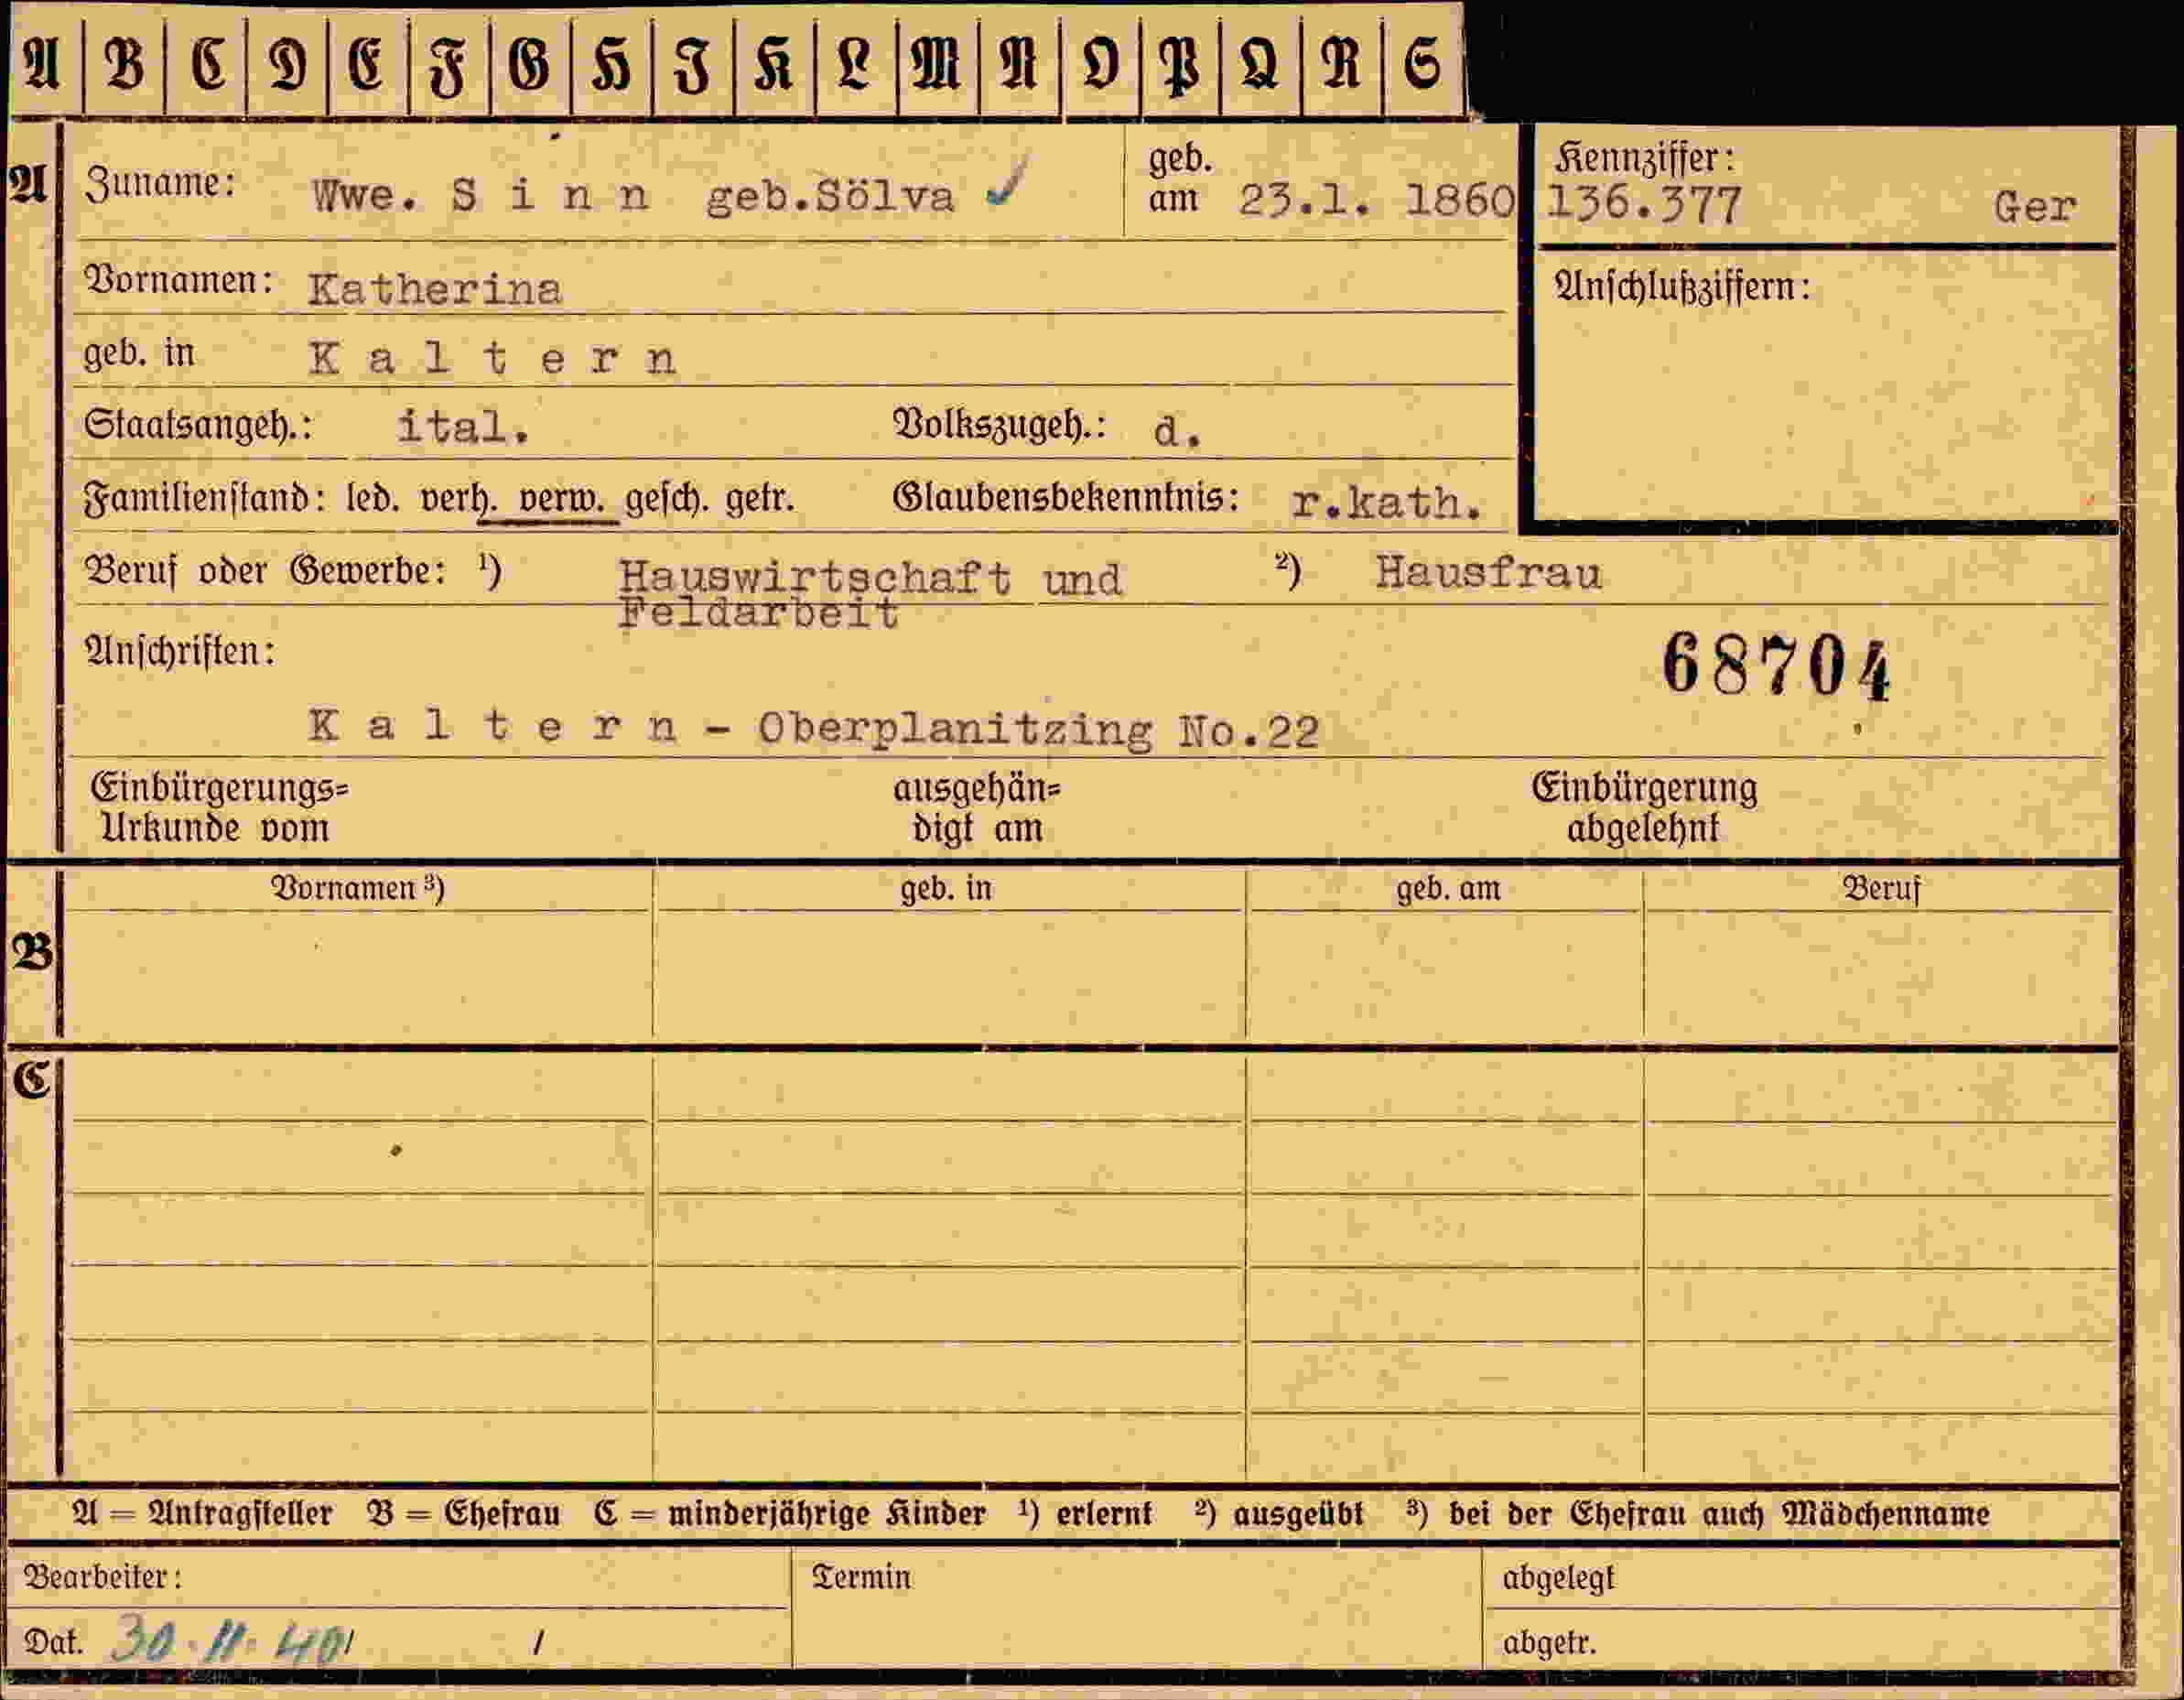 A B C D E F G H I K L M N O P Q R S
A
Zuname: Wwe. S i n n geb.Sölva ✓ geb. am 23.1. 1860
Kennziffer: 136.377 Ger
Vornamen: Katherina
Anschlußziffern:
geb. in K a l t e r n
Staatsangeh.: ital. Volkszugeh.: d.
Familienstand: led. verh. verw. gesch. getr. Glaubensbekenntnis: r.kath.
Beruf oder Gewerbe: ¹) Hauswirtschaft und ²) Hausfrau
Feldarbeit
Anschriften: 68704
K a l t e r n - Oberplanitzing No.22
Einbürgerungs= ausgehän= Einbürgerung
Urkunde vom digt am abgelehnt
Vornamen ³) geb. in geb. am Beruf
B
C
A = Antragsteller B = Ehefrau C = minderjährige Kinder ¹) erlernt ²) ausgeübt ³) bei der Ehefrau auch Mädchenname
Bearbeiter: Termin abgelegt
Dat. 30.11.40/ / abgetr.